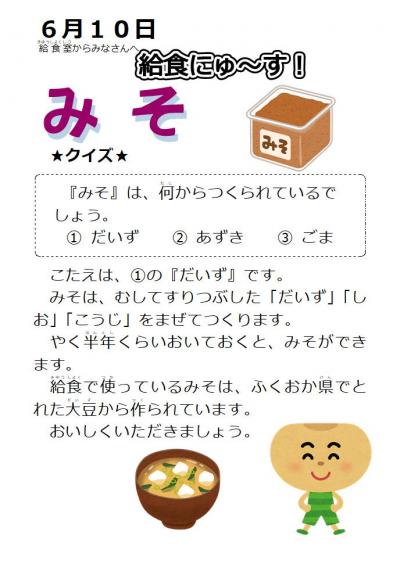 ６月１０日
給食室からみなさんへ
給食にゅ～す！
みそ
みそ
★クイズ★
『みそ』は、何からつくられているで
しょう。
① だいず　② あずき　③ ごま
こたえは、①の『だいず』です。
みそは、むしてすりつぶした「だいず」「し
お」「こうじ」をまぜてつくります。
やく半年くらいおいておくと、みそができ
ます。
給食で使っているみそは、ふくおか県でと
れた大豆から作られています。
おいしくいただきましょう。